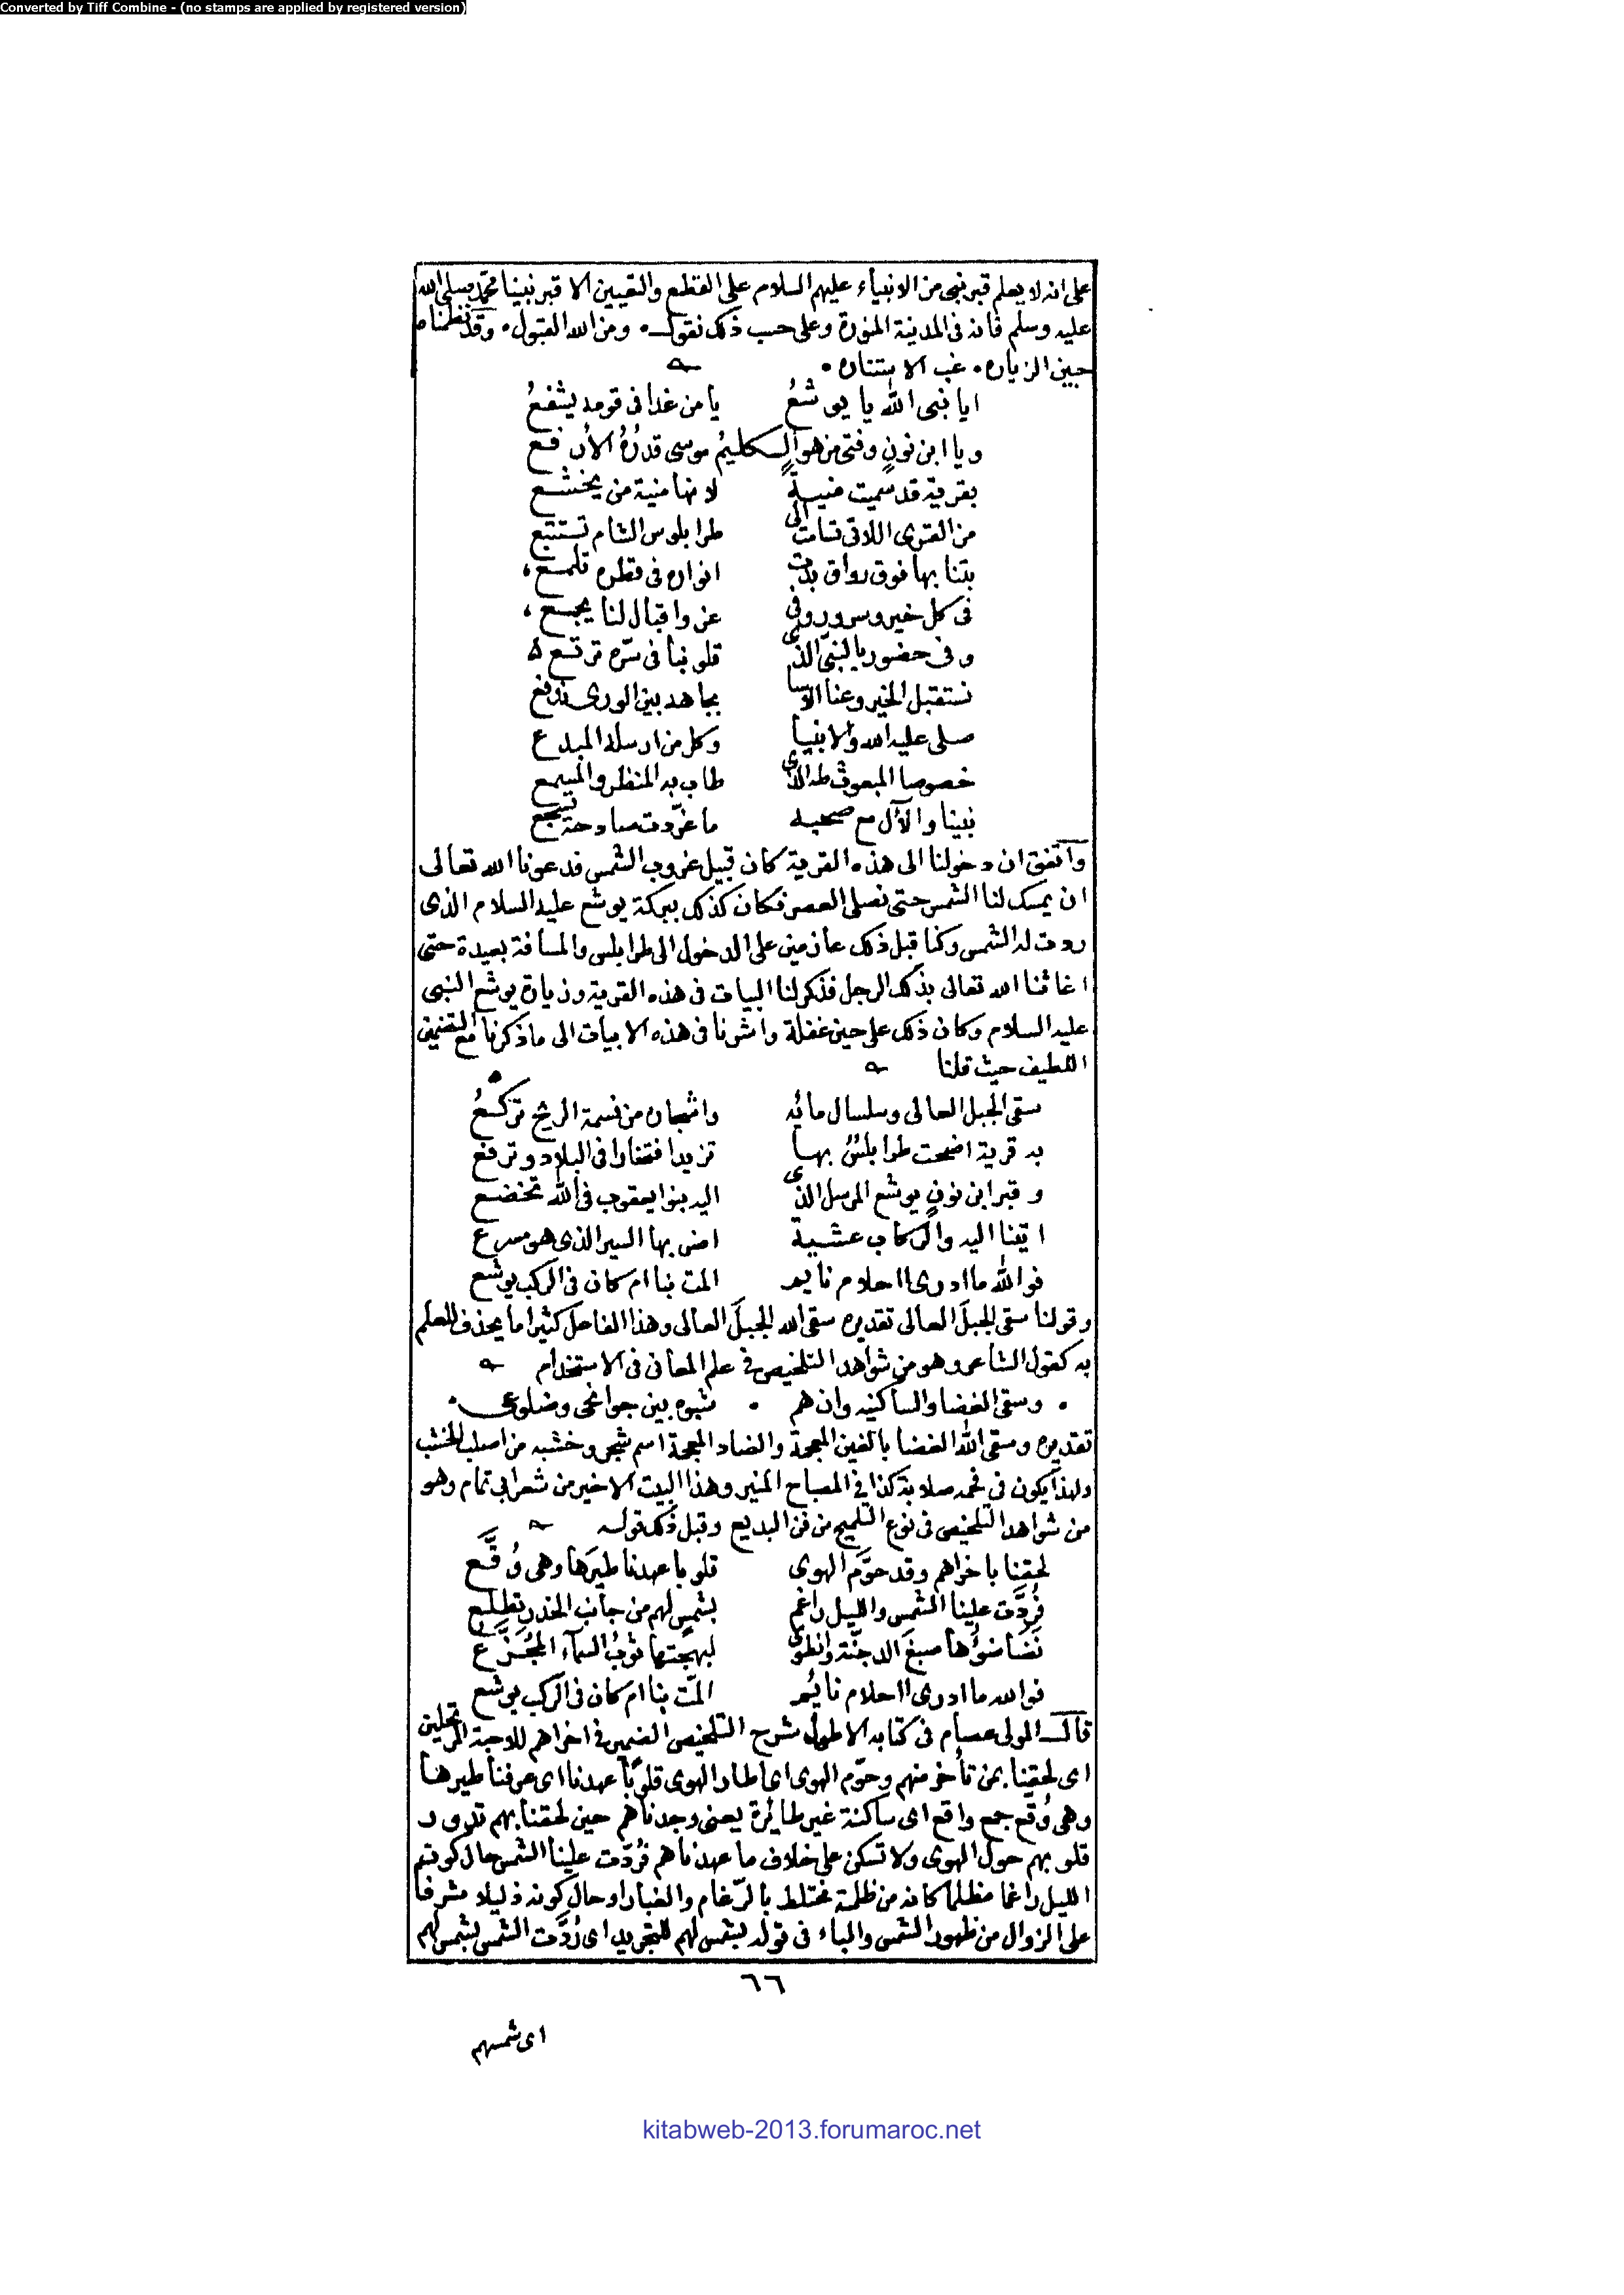 Converted by Tiff Combine - (no stamps are applied by registered version)
على انه لا يعلم قبر نبى من الانبياء عليهم السلام على القطع واليقين الا قبر نبينا محمد صلى الله
عليه وسلم فانه فى المدينة المنورة وعلى حسب ذلك نقول ۰ ومن الله القبول ۰ وقد نظمنا
حين الزياره ۰ غب الاستناره ۰
ايا نبى الله يا يوشعُ يا من غدا فى قومه يشفعُ
ويا ابن نونٍ وفتى من هو الكليمُ موسى قدرُهُ الأرفع
بقرية قد سميت منيةً لانها منية من يخشع
من القرى اللاتى تسامت الى طرابلوس الشام تستتبع
بتنا بها فوق رواق بدت انواره فى قطره تلمع
فى كل خير وسرور وفى عز واقبال لنا يجمع
وفى حضور بالنبىّ الذى قلوبنا فى سرّه ترتع
نستقبل الخير وعنا الاسا بجاهه بين الورى ندفع
صلى عليه الله والانبيا وكل من ارسله المبدع
خصوصا المبعوث طه الذى طاب به المنظر والمسمع
نبينا والآل مع صحبه ما غرّدت صادحة تسجع
واتفق ان دخولنا الى هذه القرية كان قبيل غروب الشمس فدعونا الله تعالى
ان يمسك لنا الشمس حتى نصلى العصر فكان كذلك ببركة يوشع عليه السلام الذى
ردت له الشمس وكنا قبل ذلك عازمين على الدخول الى طرابلس والمسافة بعيدة حتى
اغاثنا الله تعالى بذلك الرجل فذكر لنا البيات فى هذه القرية وزيارة يوشع النبى
عليه السلام وكان ذلك على حين غفلة واشرنا فى هذه الابيات الى ماذكرنا مع التضمين
اللطيف حيث قلنا
سقى الجبل العالى وسلسال مائه واشجان من نسمة الريح تركعُ
به قرية اضحت طرابلسٌ بها تزيد افتخارا فى البلاد وترفع
وقبر ابن نونٍ يوشع المرسل الذى اليه بنوا يعقوب فى الله تخضع
اتينا اليه والركاب عشية اضى بها السير الذى هو مسرع
فوالله ما ادرى ااحلام نايم المت بنا ام كان فى الركب يوشع
وقولنا سقى الجبلَ العالى تقديره سقى الله الجبلَ العالى وهذا الفاعل كثيرا ما يحذف للعلم
به كقول الشاعر وهو من شواهد التلخيص فى علم المعانى فى الاستخدام
۰ وسقى الغضا والساكنيه وان هم ۰ شبوه بين جوانحى وضلوعى ۰
تقديره وسقى الله الغضا بالغين المعجمة والضاد المعجمة اسم شجر وخشبه من اصلب الخشب
ولهذا يكون فى فحمه صلابة كذا فى المصباح المنير وهذا البيت الاخير من شعر ابى تمام وهو
من شواهد التلخيص فى نوع التلميح من فن البديع وقبل ذلك قوله
لحقنا باخراهم وقد حوّم الهوى قلوبا عهدنا طيرَها وهى وُقَّع
فرُدَّت علينا الشمس والليل راغم بشمسٍ لهم من جانب الخدر تطلع
نَضَا ضوؤها صبغَ الدجنّة وانطوى لبهجتها ثوبُ السماء المُجزَّع
فوالله ما ادرى ااحلام نائم المّت بنا ام كان فى الركب يوشع
قال المولى عصام فى كتابه الاطول شرح التلخيص الضمير فى اخراهم للاحبة المرتحلين
اى لحقنا بمن تأخر منهم وحوّم الهوى اى اطار الهوى قلوبًا عهدنا اى عرفنا طيرها
وهى وُقّع جمع واقع اى ساكنة غير طائرة يعنى وجدناهم حين لحقنا بهم تدور
قلوبهم حول الهوى ولا تسكن على خلاف ما عهدناهم فرُدّت علينا الشمس حال كون
الليل راغما مظلما كانه من ظلمة مختلط بالرّغام والغبار او حال كونه ذليلا مشرفا
على الزوال من ظهور الشمس والباء فى قوله بشمس لهم للتجريد اى رُدَّت الشمس بشمس لهم
٦٦
اى شمسهم
kitabweb-2013.forumaroc.net